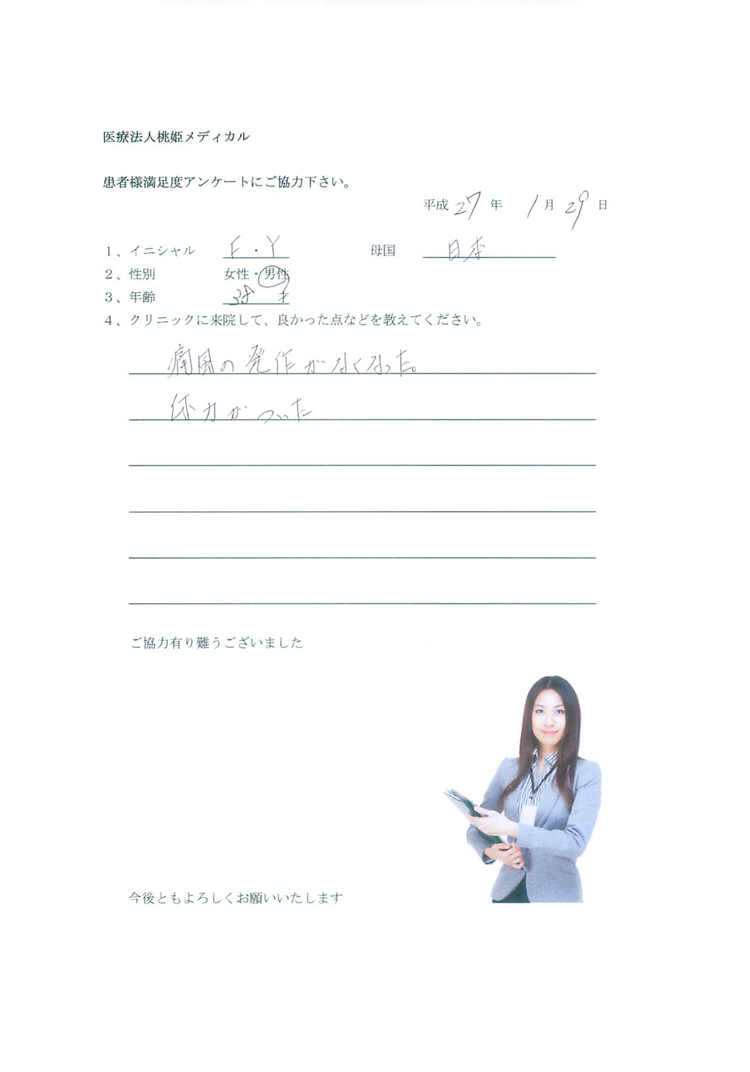 医療法人桃姫メディカル
患者様満足度アンケートにご協力下さい。
平成 27 年 1 月 29 日
1、イニシャル F・Y 母国 日本
2、性別 女性・男性
3、年齢 38 才
4、クリニックに来院して、良かった点などを教えてください。
痛風の発作がなくなった。
体力がついた
ご協力有り難うございました
今後ともよろしくお願いいたします